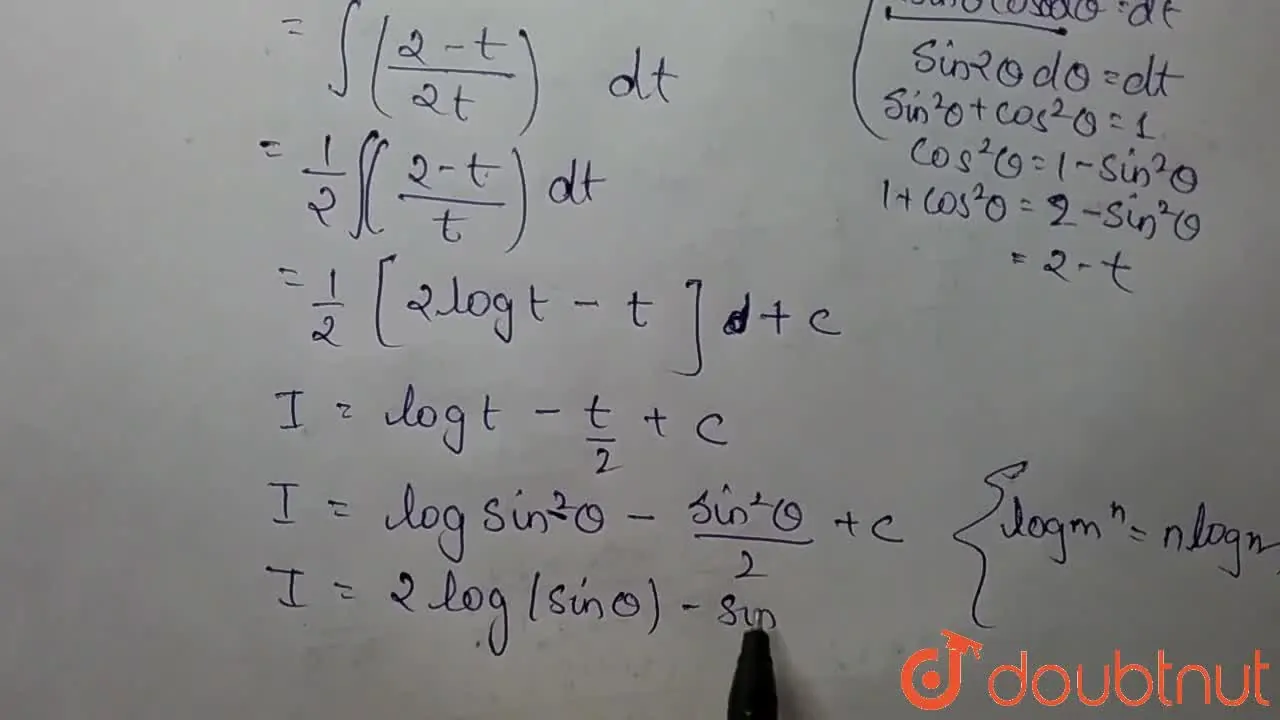 = ∫ ( (2 - t) / 2t ) dt
= 1/2 ∫ ( (2 - t) / t ) dt
= 1/2 [ 2 log t - t ] + c
I = log t - t/2 + c
I = log sin²θ - sin²θ/2 + c
I = 2 log (sin θ) - sin
dθ = dt
sin2θ dθ = dt
sin²θ + cos²θ = 1
cos²θ = 1 - sin²θ
1 + cos²θ = 2 - sin²θ
= 2 - t
{ log mⁿ = n log
doubtnut